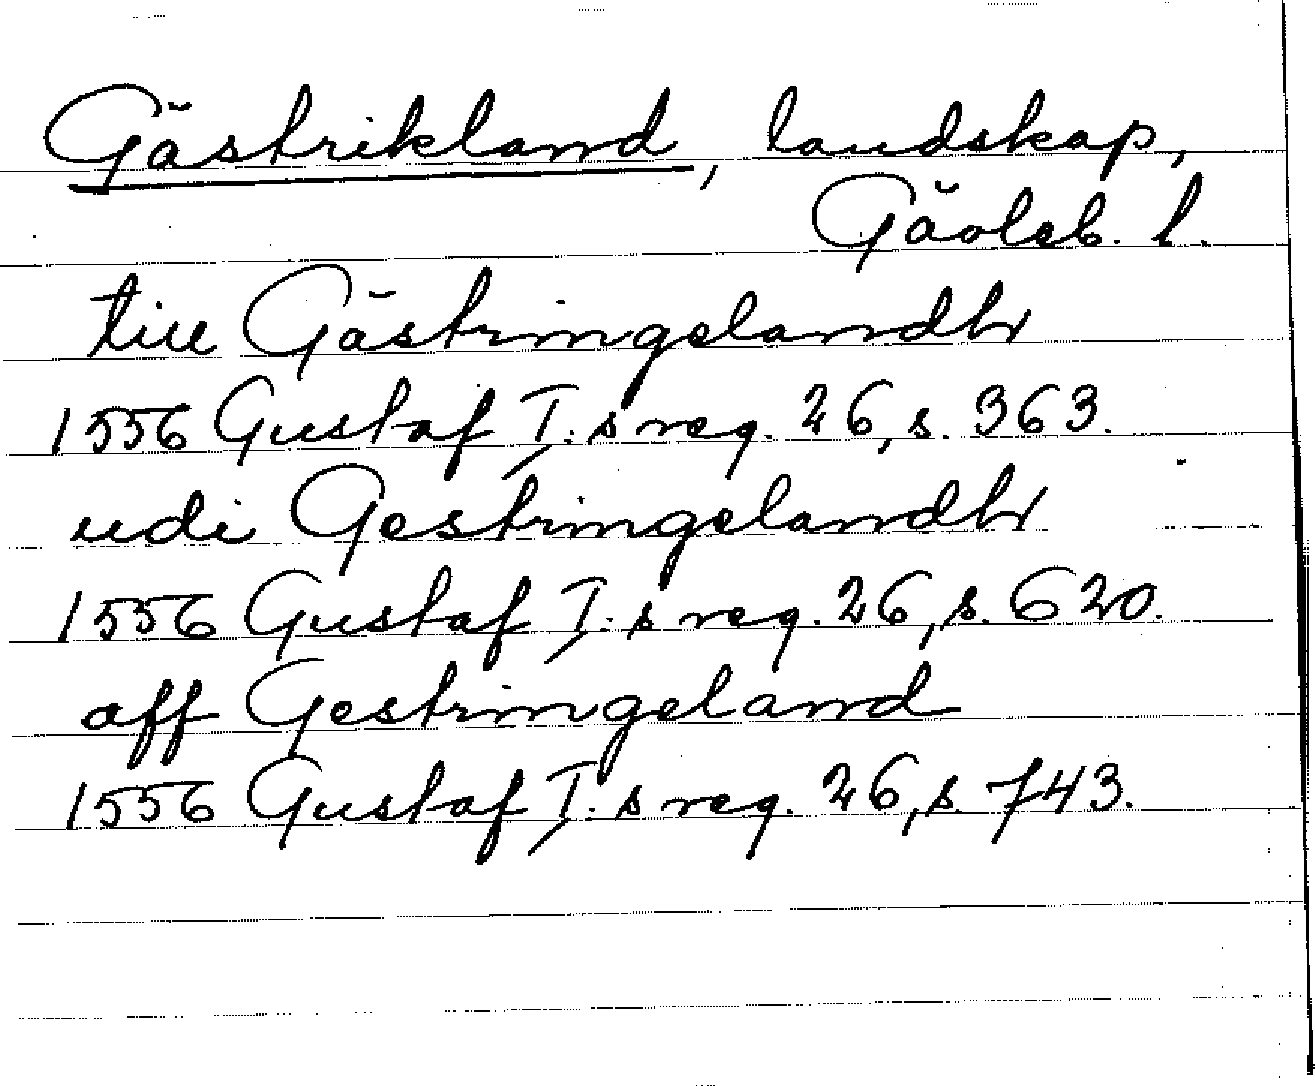 Gästrikland, landskap,
Gävleb. l.
till Gästringelandh
1556 Gustaf I:s reg. 26, s. 363.
udi Gestringelandh
1556 Gustaf I:s reg. 26, s. 620.
aff Gestringeland
1556 Gustaf I:s reg. 26, s. 743.